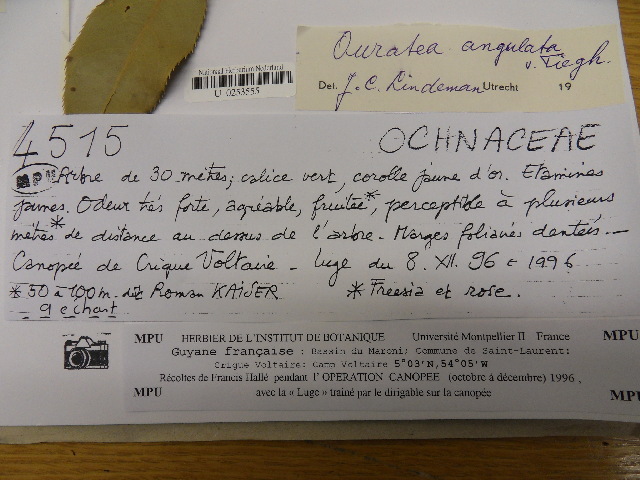 Ouratea angulata
v. Tiegh.
Det. J. C. Lindeman Utrecht 19
Nationaal Herbarium Nederland
U 0253555
4515 OCHNACEAE
MPU Arbre de 30 mètres; calice vert, corolle jaune d'or. Etamines
jaunes. Odeur très forte, agréable, fruitée*, perceptible à plusieurs
mètres* de distance au dessus de l'arbre - Marges foliaires dentées. -
Canopée de Crique Voltaire - Luge du 8. XII. 96 = 1996
* 50 à 100 m. dit Roman KAISER * Freesia et rose.
- 9 echant
MPU HERBIER DE L'INSTITUT DE BOTANIQUE Université Montpellier II France MPU
Guyane française : Bassin du Maroni; Commune de Saint-Laurent;
Crique Voltaire; Camp Voltaire 5°03'N,54°05'W
Récoltes de Francis Hallé pendant l'OPERATION CANOPEE (octobre à décembre) 1996 ,
MPU avec la « Luge » trainé par le dirigeable sur la canopée MPU